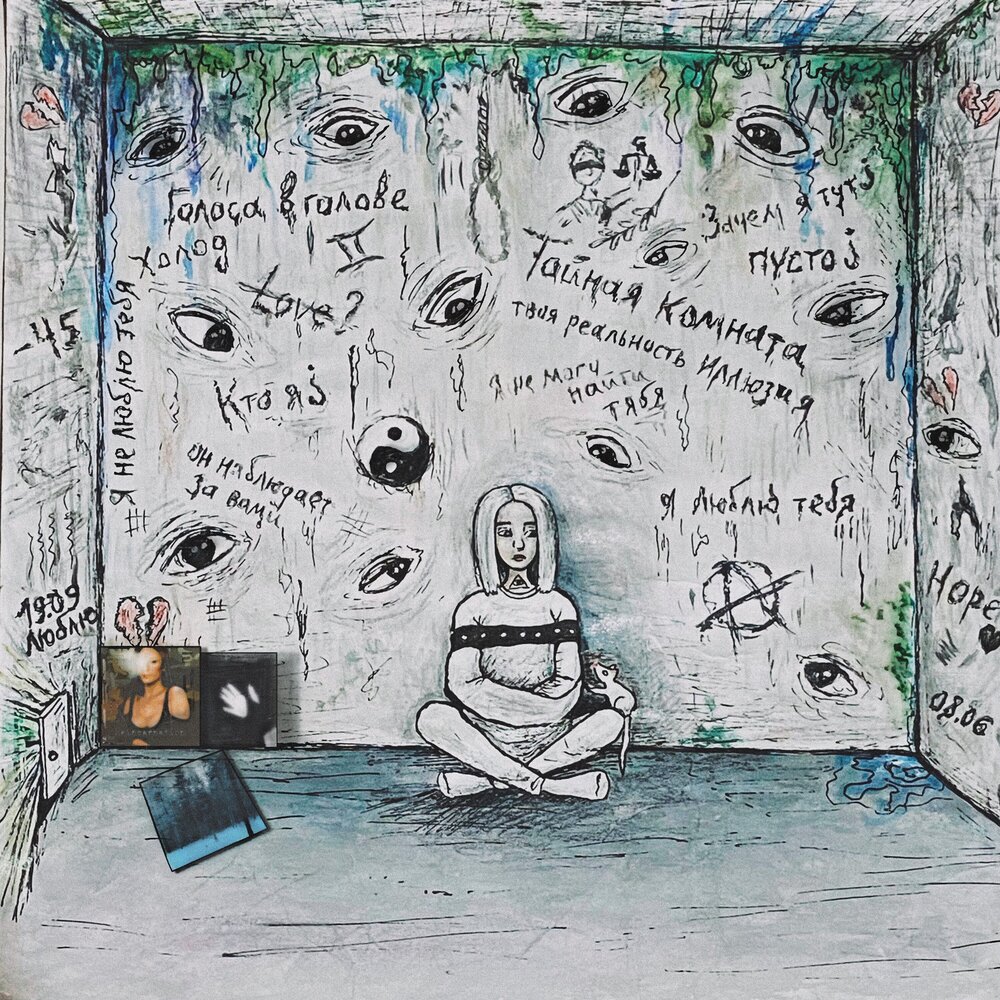 Голоса в голове
Зачем я тутj
Холод
пустоj
Love?
Тайная комната
твоя реальность иллюзия
-45
Я не люблю тебя
Кто яj
я не могу
найти
тябя
он наблюдает
за вами
я люблю тебя
19.09
люблю
Hope
08.06